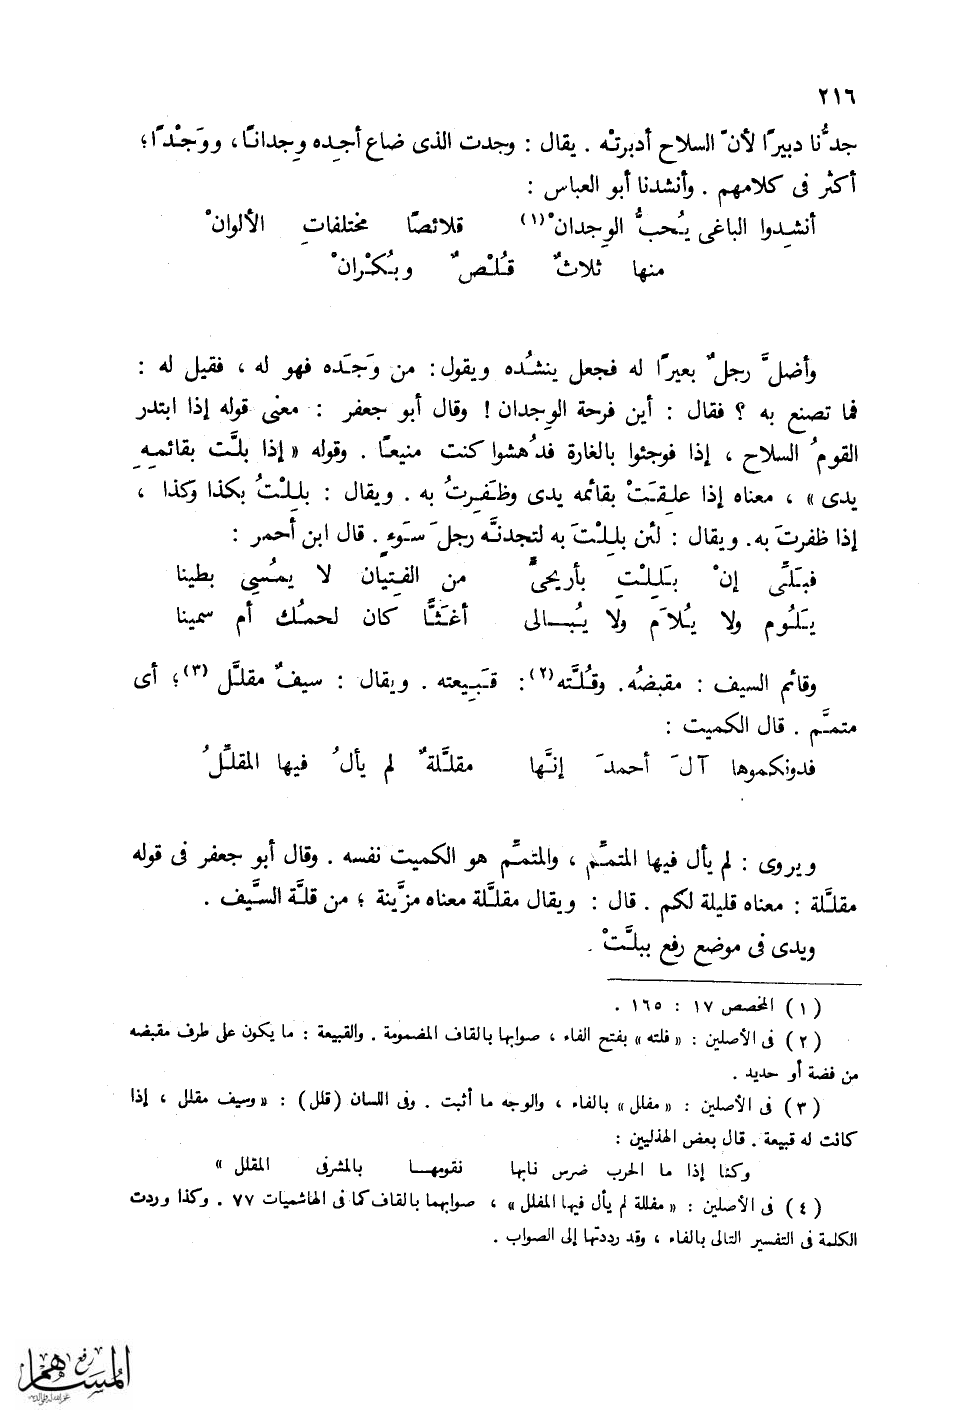 ٢١٦
جدُّنا دبيرًا لأنّ السلاح أدبرتْه . يقال : وجدت الذى ضاع أجِده وِجدانًا، ووَجْدًا؛
أكثر فى كلامهم . وأنشدنا أبو العباس :
أنشِدوا الباغى يُحبُّ الوِجدانْ(١) قلائصًا مختلفاتِ الألوانْ
منها ثلاثٌ قُلْصٌ وبُكْرانْ
وأضلَّ رجلٌ بعيرًا له فجعل ينشُده ويقول: من وَجَده فهو له ، فقيل له :
فما تصنع به ؟ فقال : أين فرحة الوِجدان ! وقال أبو جعفر : معنى قوله إذا ابتدر
القومُ السلاح ، إذا فوجئوا بالغارة فدُهشوا كنت منيعًا . وقوله « إذا بلَّت بقائمِهِ
يدى » ، معناه إذا علِقَتْ بقائمه يدى وظَفِرتُ به . ويقال : بلِلْتُ بكذا وكذا ،
إذا ظفرتَ به. ويقال : لئن بلِلْتَ به لتجدنَّه رجلَ سَوءٍ . قال ابن أحمر :
فبَلِّى إنْ بَلِلْتِ بأريحىٍّ من الفِتيان لا يمُسِى بطينا
يَلُوم ولا يُلاَم ولا يُبالى أغَثًّا كان لحمُك أم سمينا
وقائم السيف : مقبضُه. وقُلَّته(٢): قَبِيعته . ويقال : سيفٌ مقلَّل (٣)؛ أى
متمَّم . قال الكميت :
فدونكموها آلَ أحمدَ إنَّها مقلَّلةٌ لم يألُ فيها المقلِّلُ
ويروى : لم يأل فيها المتمِّم ، والمتمِّم هو الكميت نفسه . وقال أبو جعفر فى قوله
مقلَّلة : معناه قليلة لكم . قال : ويقال مقلَّلة معناه مزَّينة ؛ من قلَّة السَّيف .
ويدى فى موضع رفع ببلَّتْ .
(١) المخصص ١٧ : ١٦٥ .
(٢) فى الأصلين : « فلته » بفتح الفاء ، صوابها بالقاف المضمومة . والقبيعة : ما يكون على طرف مقبضه
من فضة أو حديد .
(٣) فى الأصلين : « مفلل » بالفاء ، والوجه ما أثبت . وفى اللسان (قلل) : « وسيف مقلل ، إذا
كانت له قبيعة . قال بعض الهذليين :
وكنا إذا ما الحرب ضرس نابها نقومهـا بالمشرفى المقلل »
(٤) فى الأصلين : « مفللة لم يأل فيها المفلل » ، صوابهما بالقاف كما فى الهاشميات ٧٧ . وكذا وردت
الكلمة فى التفسير التالى بالفاء ، وقد رددتها إلى الصواب .